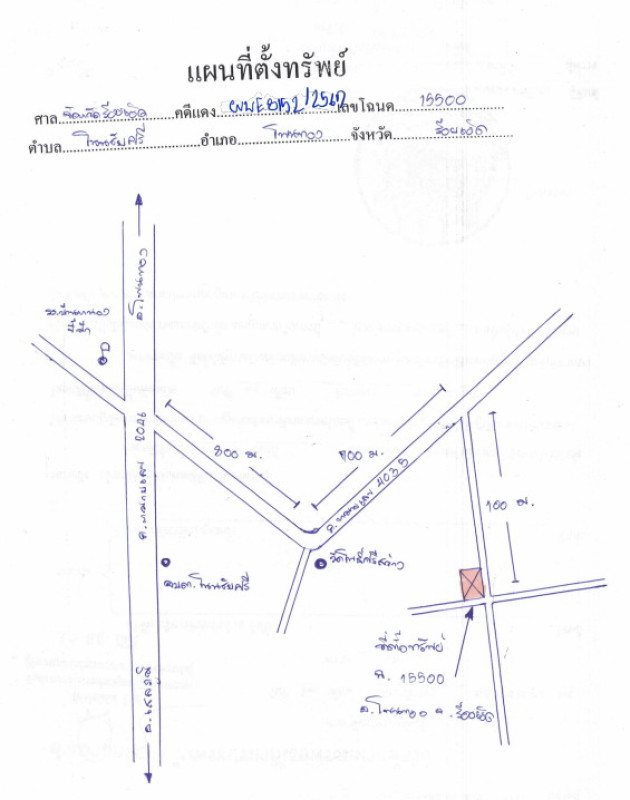 แผนที่ตั้งทรัพย์
ศาล จังหวัดร้อยเอ็ด คดีแดง ผบE8152/2567 เลขโฉนด 15500
ตำบล โนนชัยศรี อำเภอ โพนทอง จังหวัด ร้อยเอ็ด
อ.โพนทอง
ถ.หมายเลข 2046
800 ม.
900 ม.
ถ.หมายเลข 4035
100 ม.
วัดโพธิ์ศรีสว่าง
อบต.โนนชัยศรี
ที่ตั้งทรัพย์
ฉ. 15500
อ.โพนทอง จ.ร้อยเอ็ด
อ.เสลภูมิ